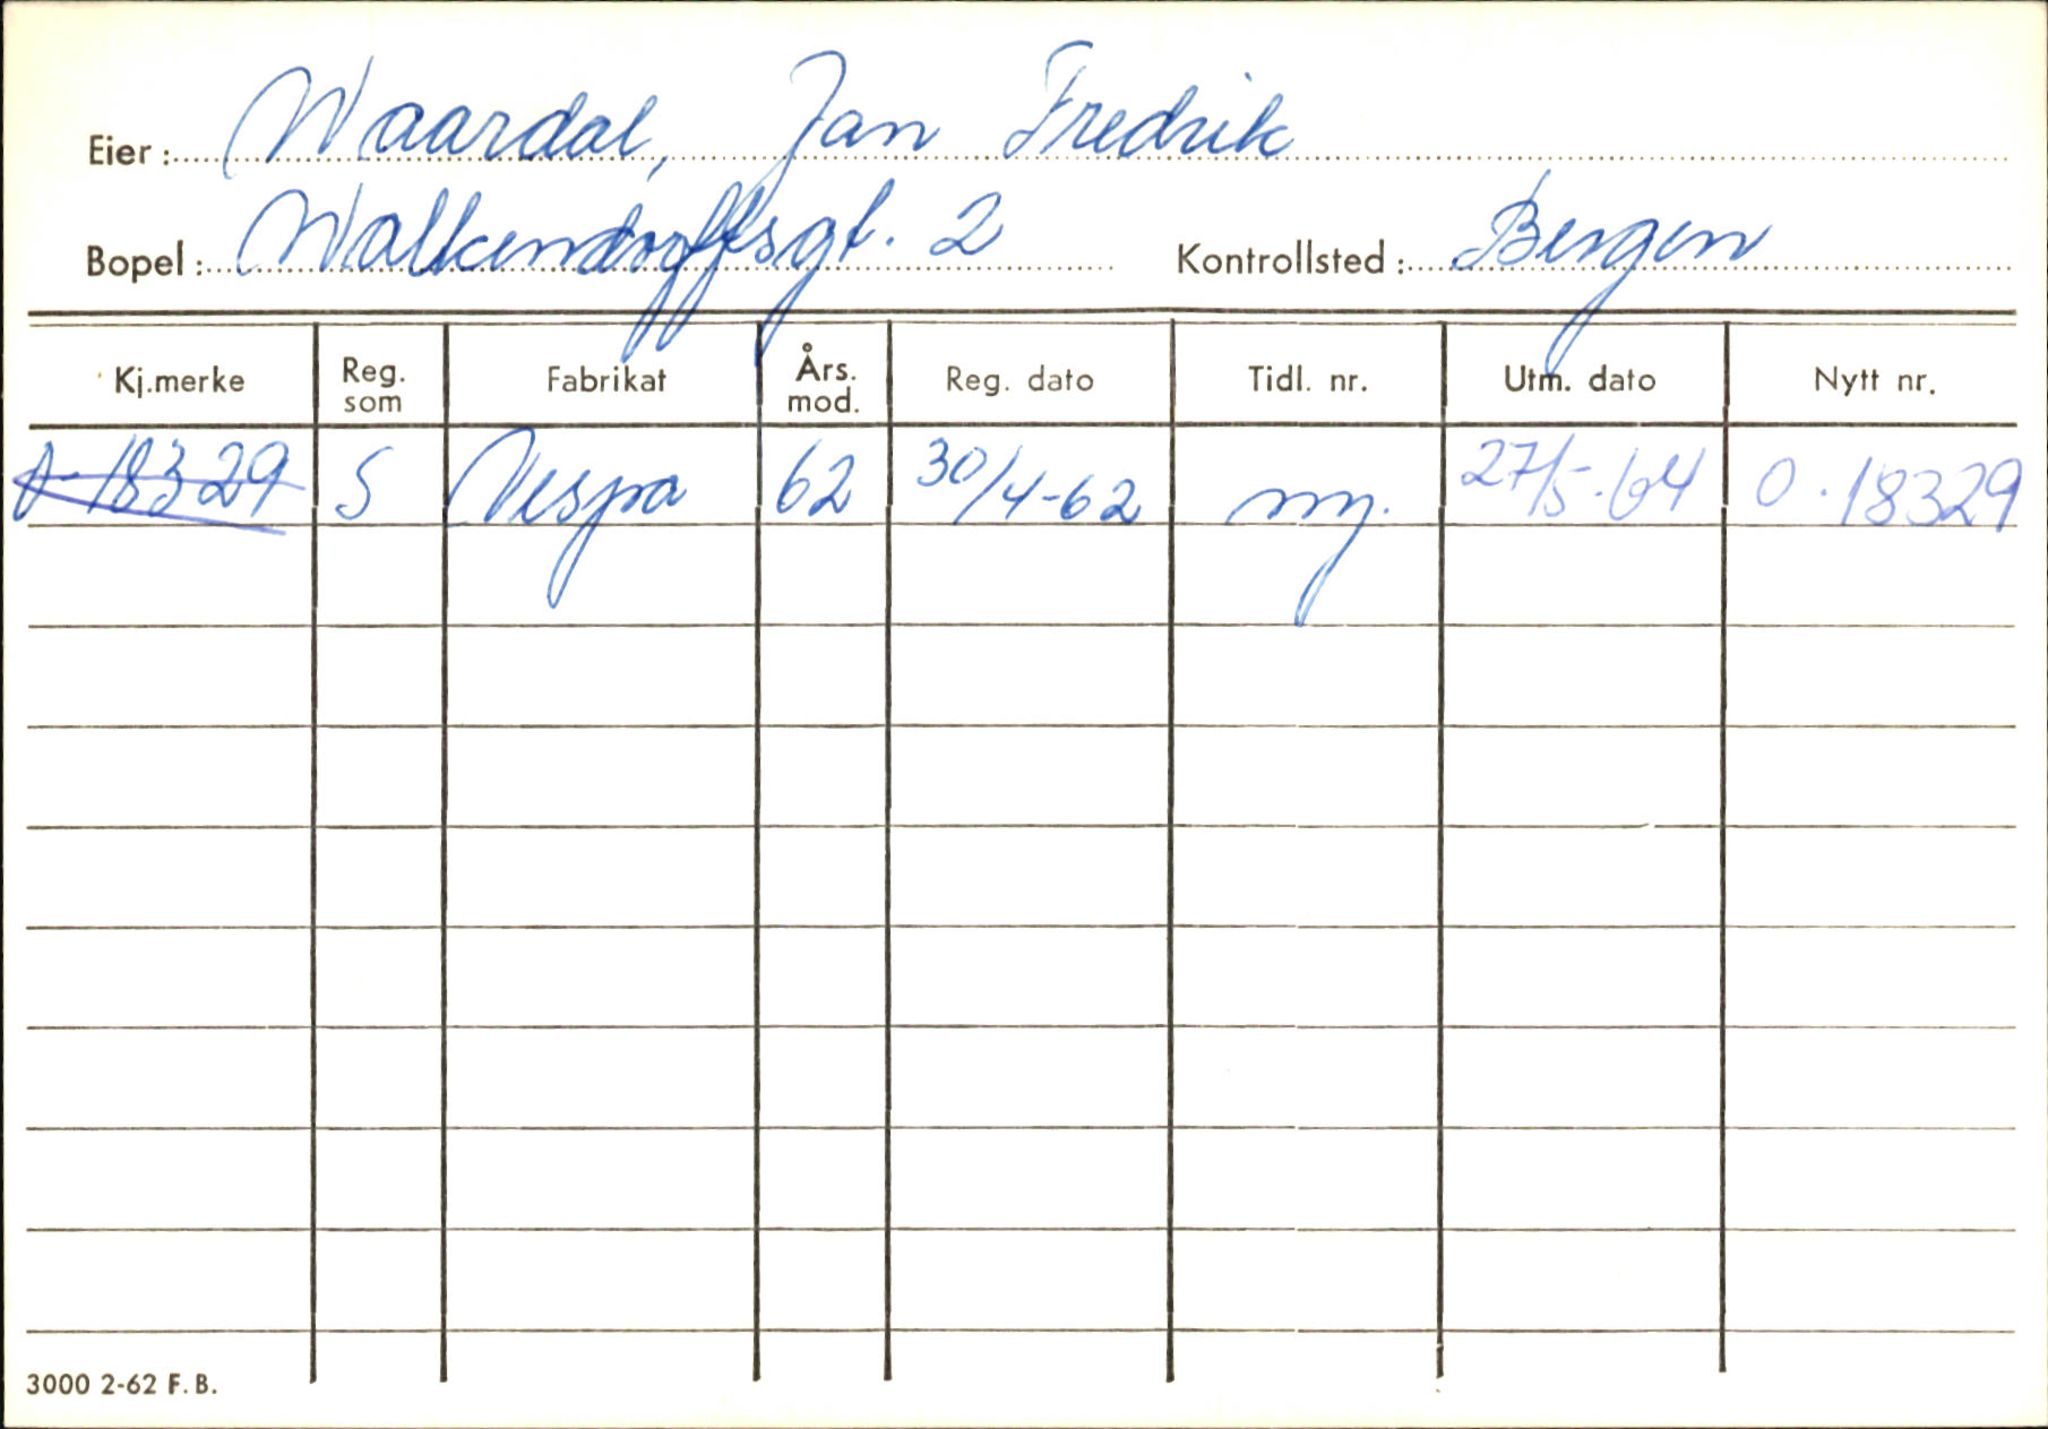 Eier: Waardal, Jan Fredrik
Bopel: Walkendorffsgt. 2 Kontrollsted: Bergen
Kj.merke Reg. som Fabrikat Års. mod. Reg. dato Tidl. nr. Utm. dato Nytt nr.
18329 S Vespa 62 30/4-62 ny. 27/5-64 O-18329
3000 2-62 F.B.